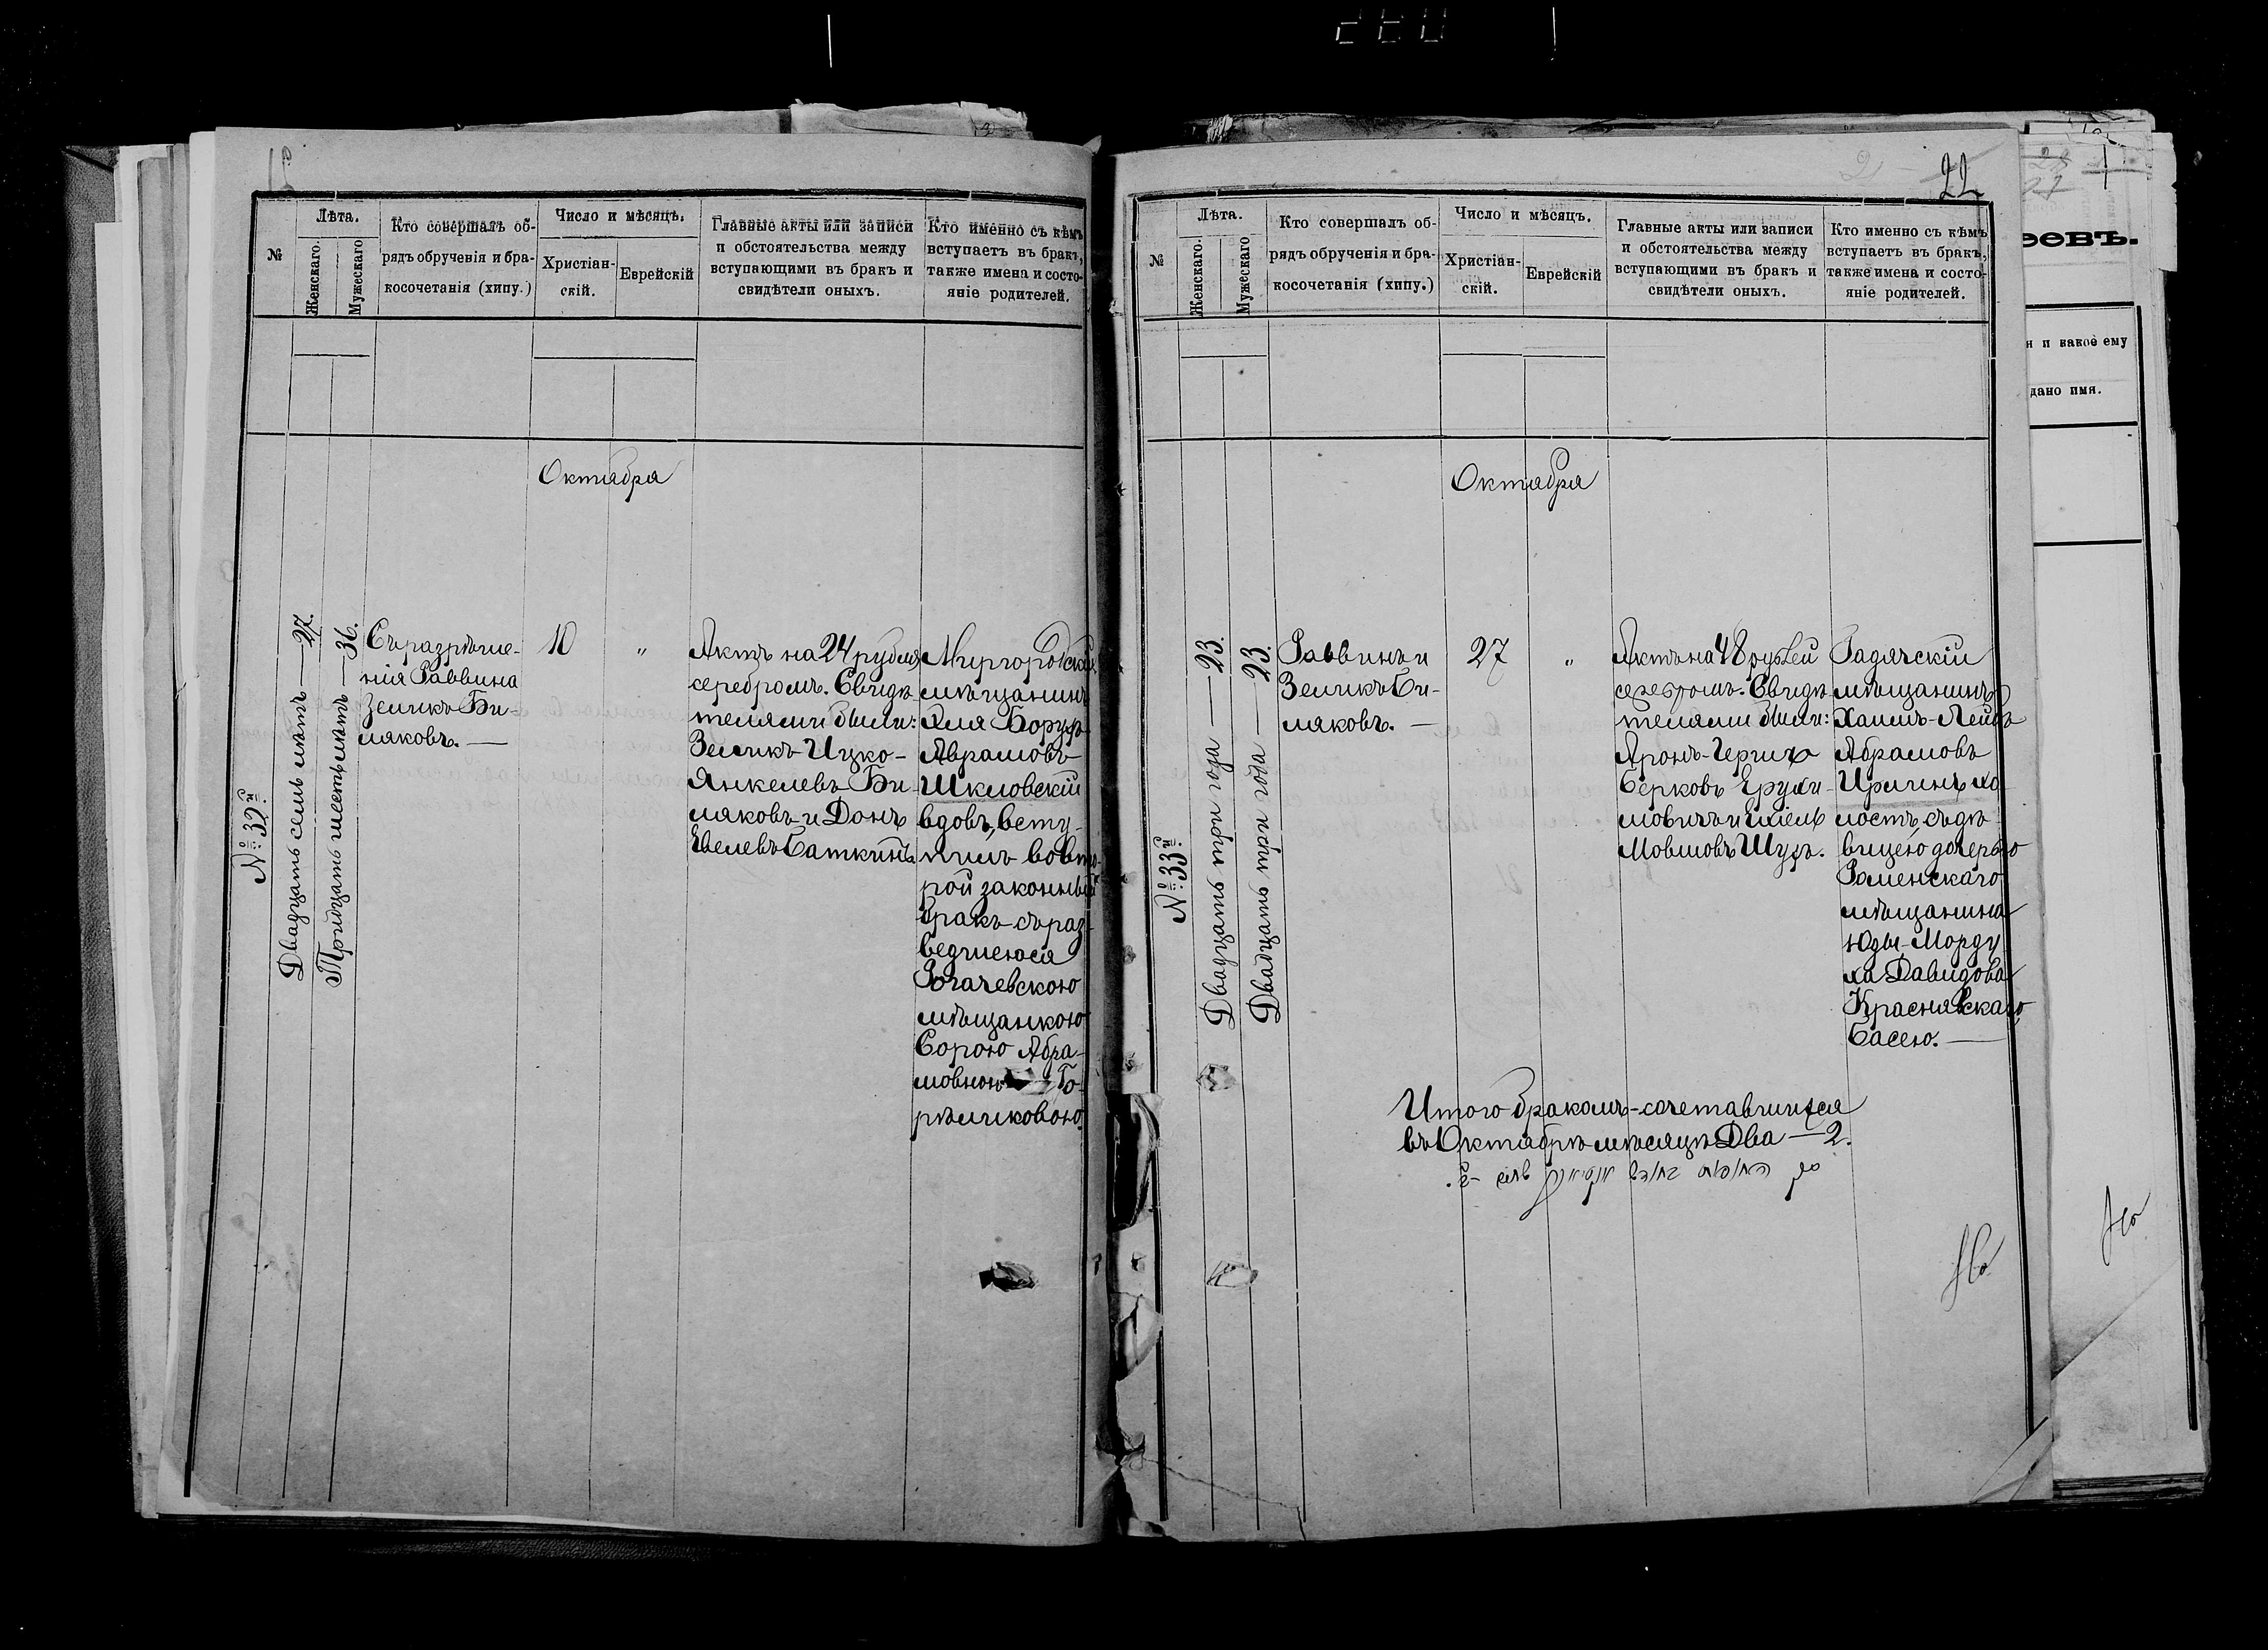 22
№
Лѣта.
Женскаго.
Мужескаго
Кто совершалъ об-
рядъ обрученія и бра-
косочетанія (хипу.)
Число и мѣсяцъ.
Христіан-
скій.
Еврейскій
Главные акты или записи
и обстоятельства между
вступающими въ бракъ и
свидѣтели оныхъ.
Кто именно съ кѣмъ
вступаетъ въ бракъ,
также имена и состо-
яніе родителей.
Октября
№: 32й.
Двадцать семь лѣтъ — 27.
Тридцать шесть лѣтъ — 36.
Съ разрѣше-
нія Раввина
Зеликъ Би-
ляковъ. —
10
„
Актъ на 24 рубля
серебромъ. Свидѣ-
телями были:
Зеликъ Ицко-
Янкелевъ Би-
ляковъ и Донъ
Евелевъ Баткинъ
Миргородскій
мѣщанинъ
Эля Борухъ
Аврамовъ
Шкловскій
вдовъ, всту-
пилъ во вто-
рой законный
бракъ съ раз-
ведшеюся
Рогачевскою
мѣщанкою
Сорою Абра-
мовною Го-
рѣликовою.
№
Лѣта.
Женскаго.
Мужескаго
Кто совершалъ об-
рядъ обрученія и бра-
косочетанія (хипу.)
Число и мѣсяцъ.
Христіан-
скій.
Еврейскій
Главные акты или записи
и обстоятельства между
вступающими въ бракъ и
свидѣтели оныхъ.
Кто именно съ кѣмъ
вступаетъ въ бракъ,
также имена и состо-
яніе родителей.
Октября
№: 33й.
Двадцать три года — 23.
Двадцать три года — 23.
Раввинъ и
Зеликъ Би-
ляковъ. —
27
„
Актъ на 48 рублей
серебромъ. Свидѣ-
телями были:
Аронъ-Герцъ
Берковъ Ерухи-
мовичъ и Ехіель
Мовшовъ Шуръ.
Гадячскій
мѣщанинъ
Хаимъ-Лейбъ
Абрамовъ
Цирлинъ хо-
лостъ, съ дѣ-
вицею дочерью
Роменскаго
мѣщанина
Юды-Морду-
ха Давидова
Краснявскаго
Басею. —
Итого бракомъ-сочетавшихся
въ Октябрѣ мѣсяцѣ Два — 2.
еевъ.
и какое ему
дано имя.